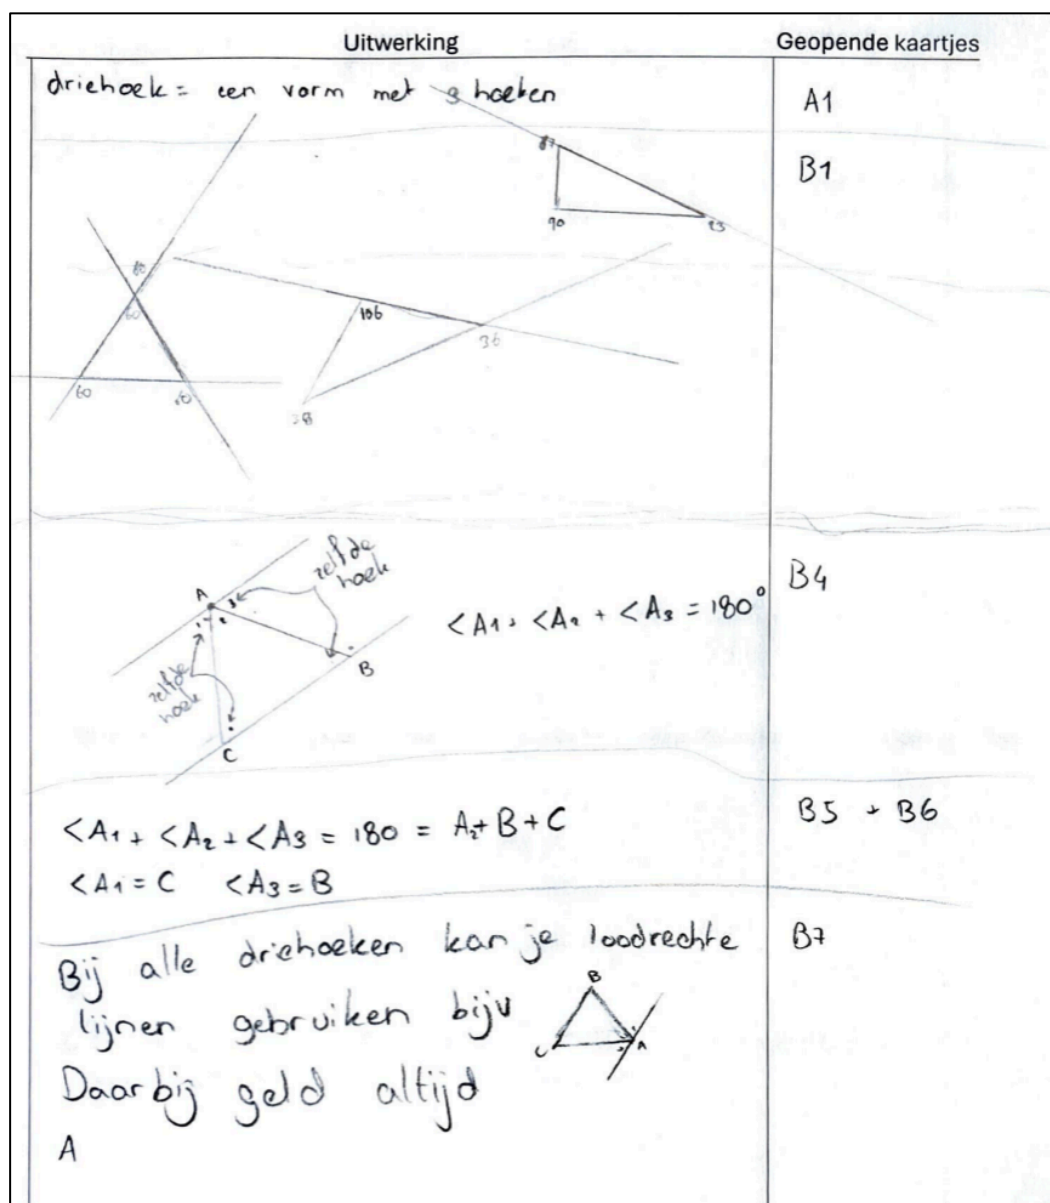 Uitwerking
Geopende kaartjes
driehoek = een vorm met 3 hoeken
A1
B1
87
90
23
60
60
60
106
36
38
B4
A
1
2
3
zelfde hoek
B
zelfde hoek
C
<A1 + <A2 + <A3 = 180°
B5 + B6
<A1 + <A2 + <A3 = 180 = A2+B+C
<A1 = C <A3 = B
B7
Bij alle driehoeken kan je loodrechte
lijnen gebruiken bijv
B
A
Daarbij geld altijd
A